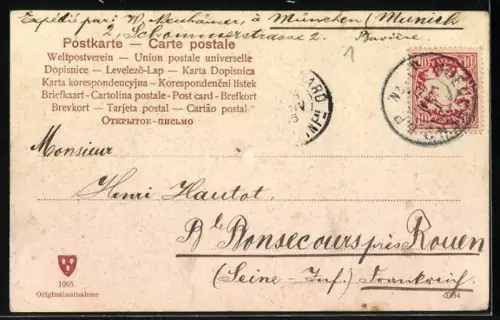 Expédié par: H. Neuhäuser, à München (Munich
2, Schommerstrasse 2. Bavière.
1
Postkarte — Carte postale
Weltpostverein — Union postale universelle
Dopisnice — Levelező-Lap — Karta Dopisnica
Karta korespondencyjna — Korespondenční lístek
Briefkaart - Cartolina postale - Post card - Brefkort
Brevkort — Tarjeta postal — Cartão postal
Открытое-письмо
10 10
Monsieur
Henri Hautot,
Bonsecours près Rouen
(Seine-Inf.) Frankreich.
1005.
Originalaufnahme